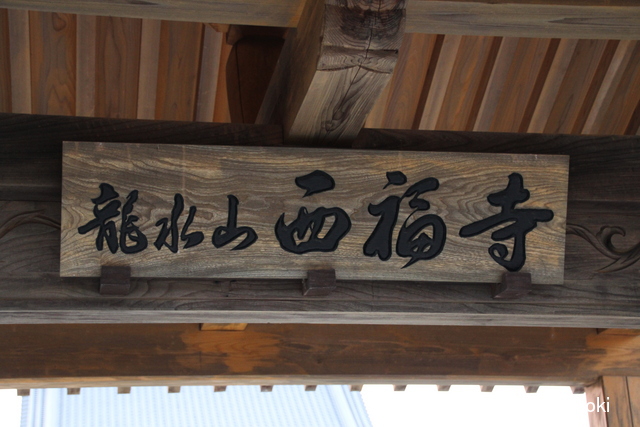 龍水山西福寺
oki